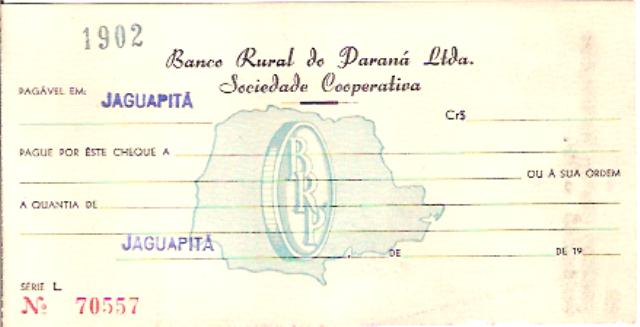 1902
Banco Rural do Paraná Ltda.
Sociedade Cooperativa
PAGÁVEL EM: JAGUAPITÃ
Cr$
PAGUE POR ÊSTE CHEQUE A
OU À SUA ORDEM
A QUANTIA DE
BRP
JAGUAPITÃ , DE DE 19
SÉRIE L
Nº 70557